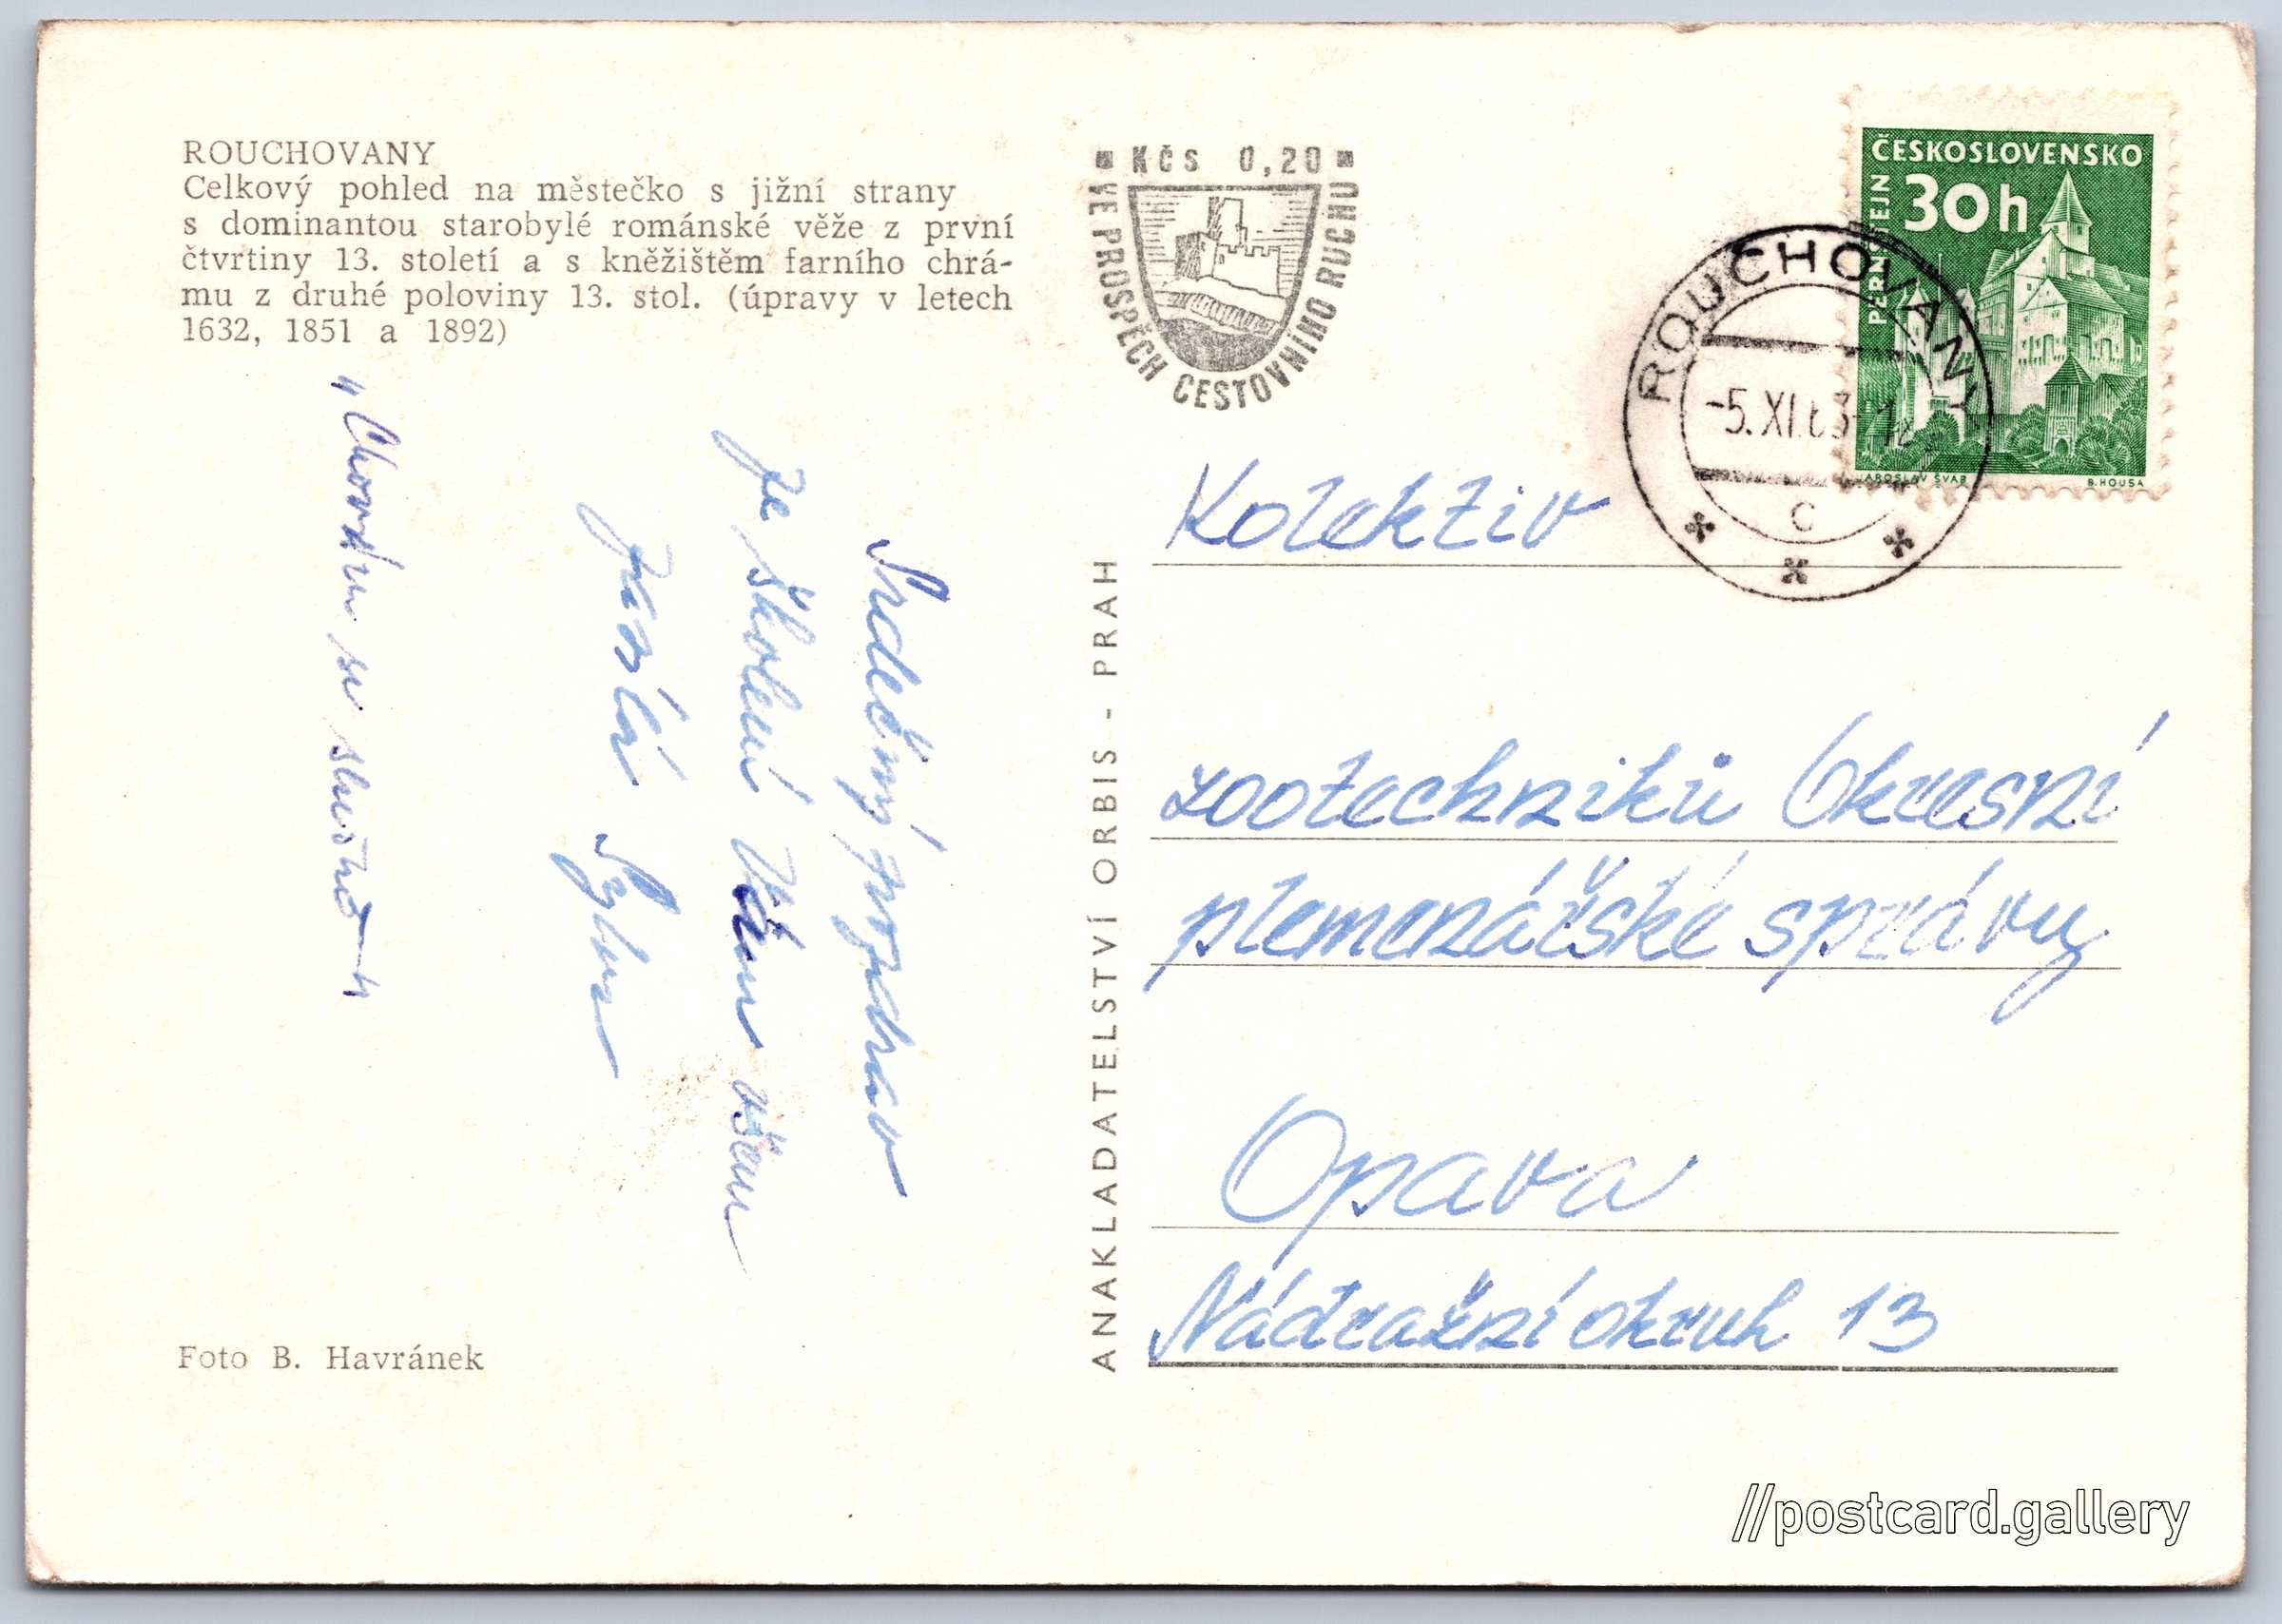 ROUCHOVANY
Celkový pohled na městečko s jižní strany
s dominantou starobylé románské věže z první
čtvrtiny 13. století a s kněžištěm farního chrá-
mu z druhé poloviny 13. stol. (úpravy v letech
1632, 1851 a 1892)
Srdečný pozdrav
ze školení Vám všem
zasílá
"Chovám se slušně"
Foto B. Havránek
ANAKLADATELSTVÍ ORBIS - PRAH
KČS 0,20
VE PROSPĚCH CESTOVNÍHO RUCHU
ČESKOSLOVENSKO
30h
PERNŠTEJN
JAROSLAV ŠVAB
B. HOUSA
ROUCHOVANY
-5.XI.63-12
C
Kolektiv
zootechniků Okresní
plemenářské správy
Opava
Nádražní okruh 13
//postcard.gallery